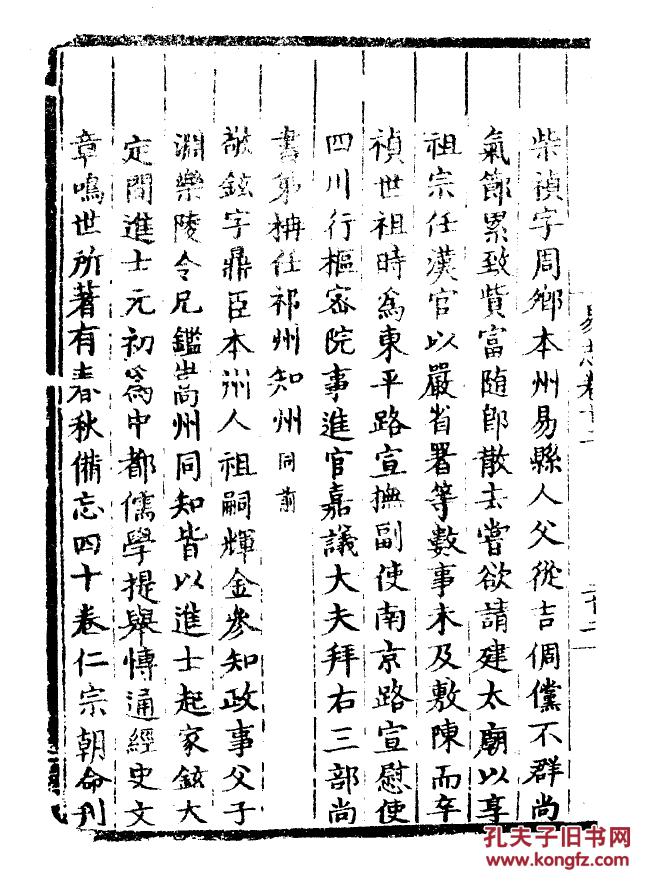 柴禎字周鄉本州易縣人父從吉倜儻不群尚
氣節累致貲富随即散去嘗欲請建太廟以享
祖宗任漢官以嚴省署等數事未及敷陳而卒
禎世祖時為東平路宣撫副使南京路宣慰使
四川行樞密院事進官嘉議大夫拜右三部尚
書弟柟任祁州知州同前
敬鉉字鼎臣本州人祖嗣輝金參知政事父子
淵樂陵令兄鑑嵩州同知皆以進士起家鉉大
定間進士元初為中都儒學提舉博通經史文
章鳴世所著有春秋備忘四十卷仁宗朝命刊
孔夫子旧书网
www.kongfz.com